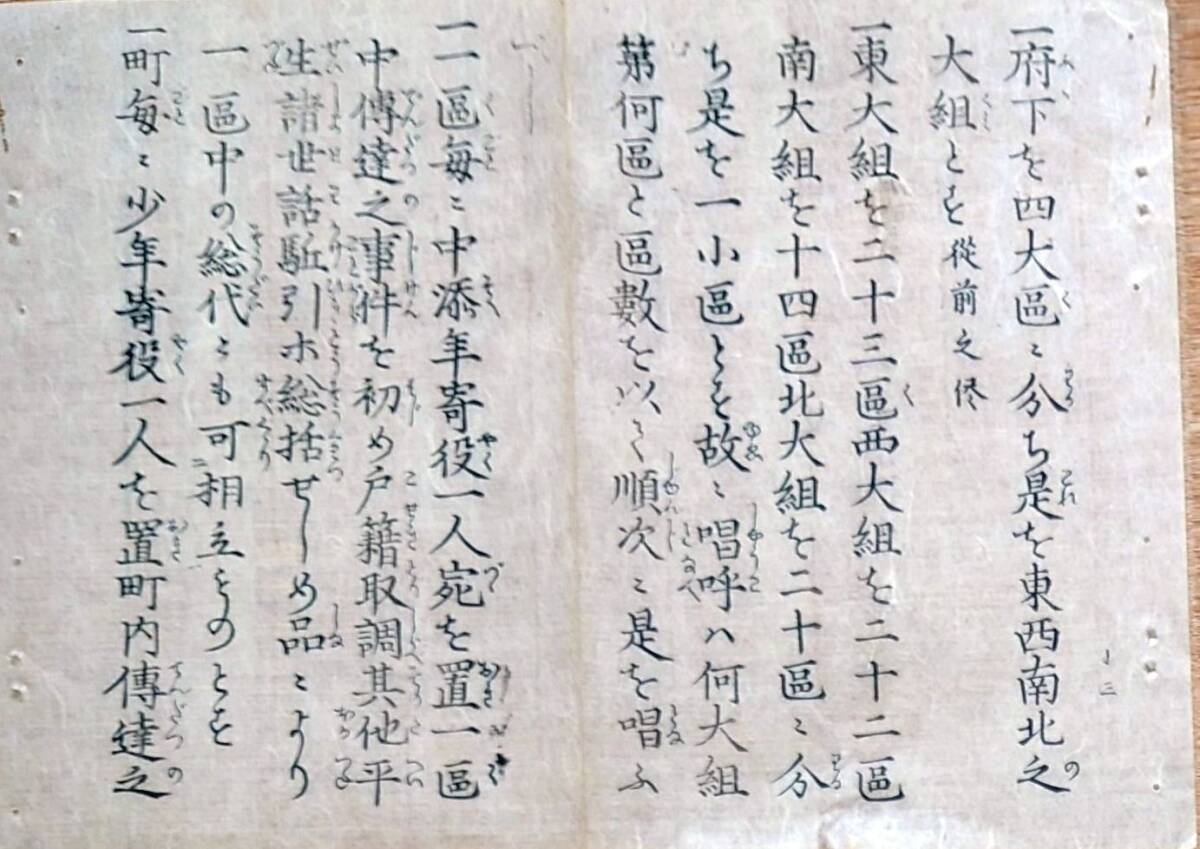 一府下を四大區ニ分ち是を東西南北之
大組とす 從前之侭
一東大組を二十三區西大組を二十二區
南大組を十四區北大組を二十區ニ分
ち是を一小區とす故ニ唱呼ハ何大組
第何區と區數を以て順次ニ是を唱ふ
一一區每ニ中添年寄役一人宛を置一區
中傳達之事件を初め戸籍取調其他平
生諸世話駈引ホ総括せしめ品ニより
一區中の総代ニも可相立ものとす
一町每ニ少年寄役一人を置町内傳達之